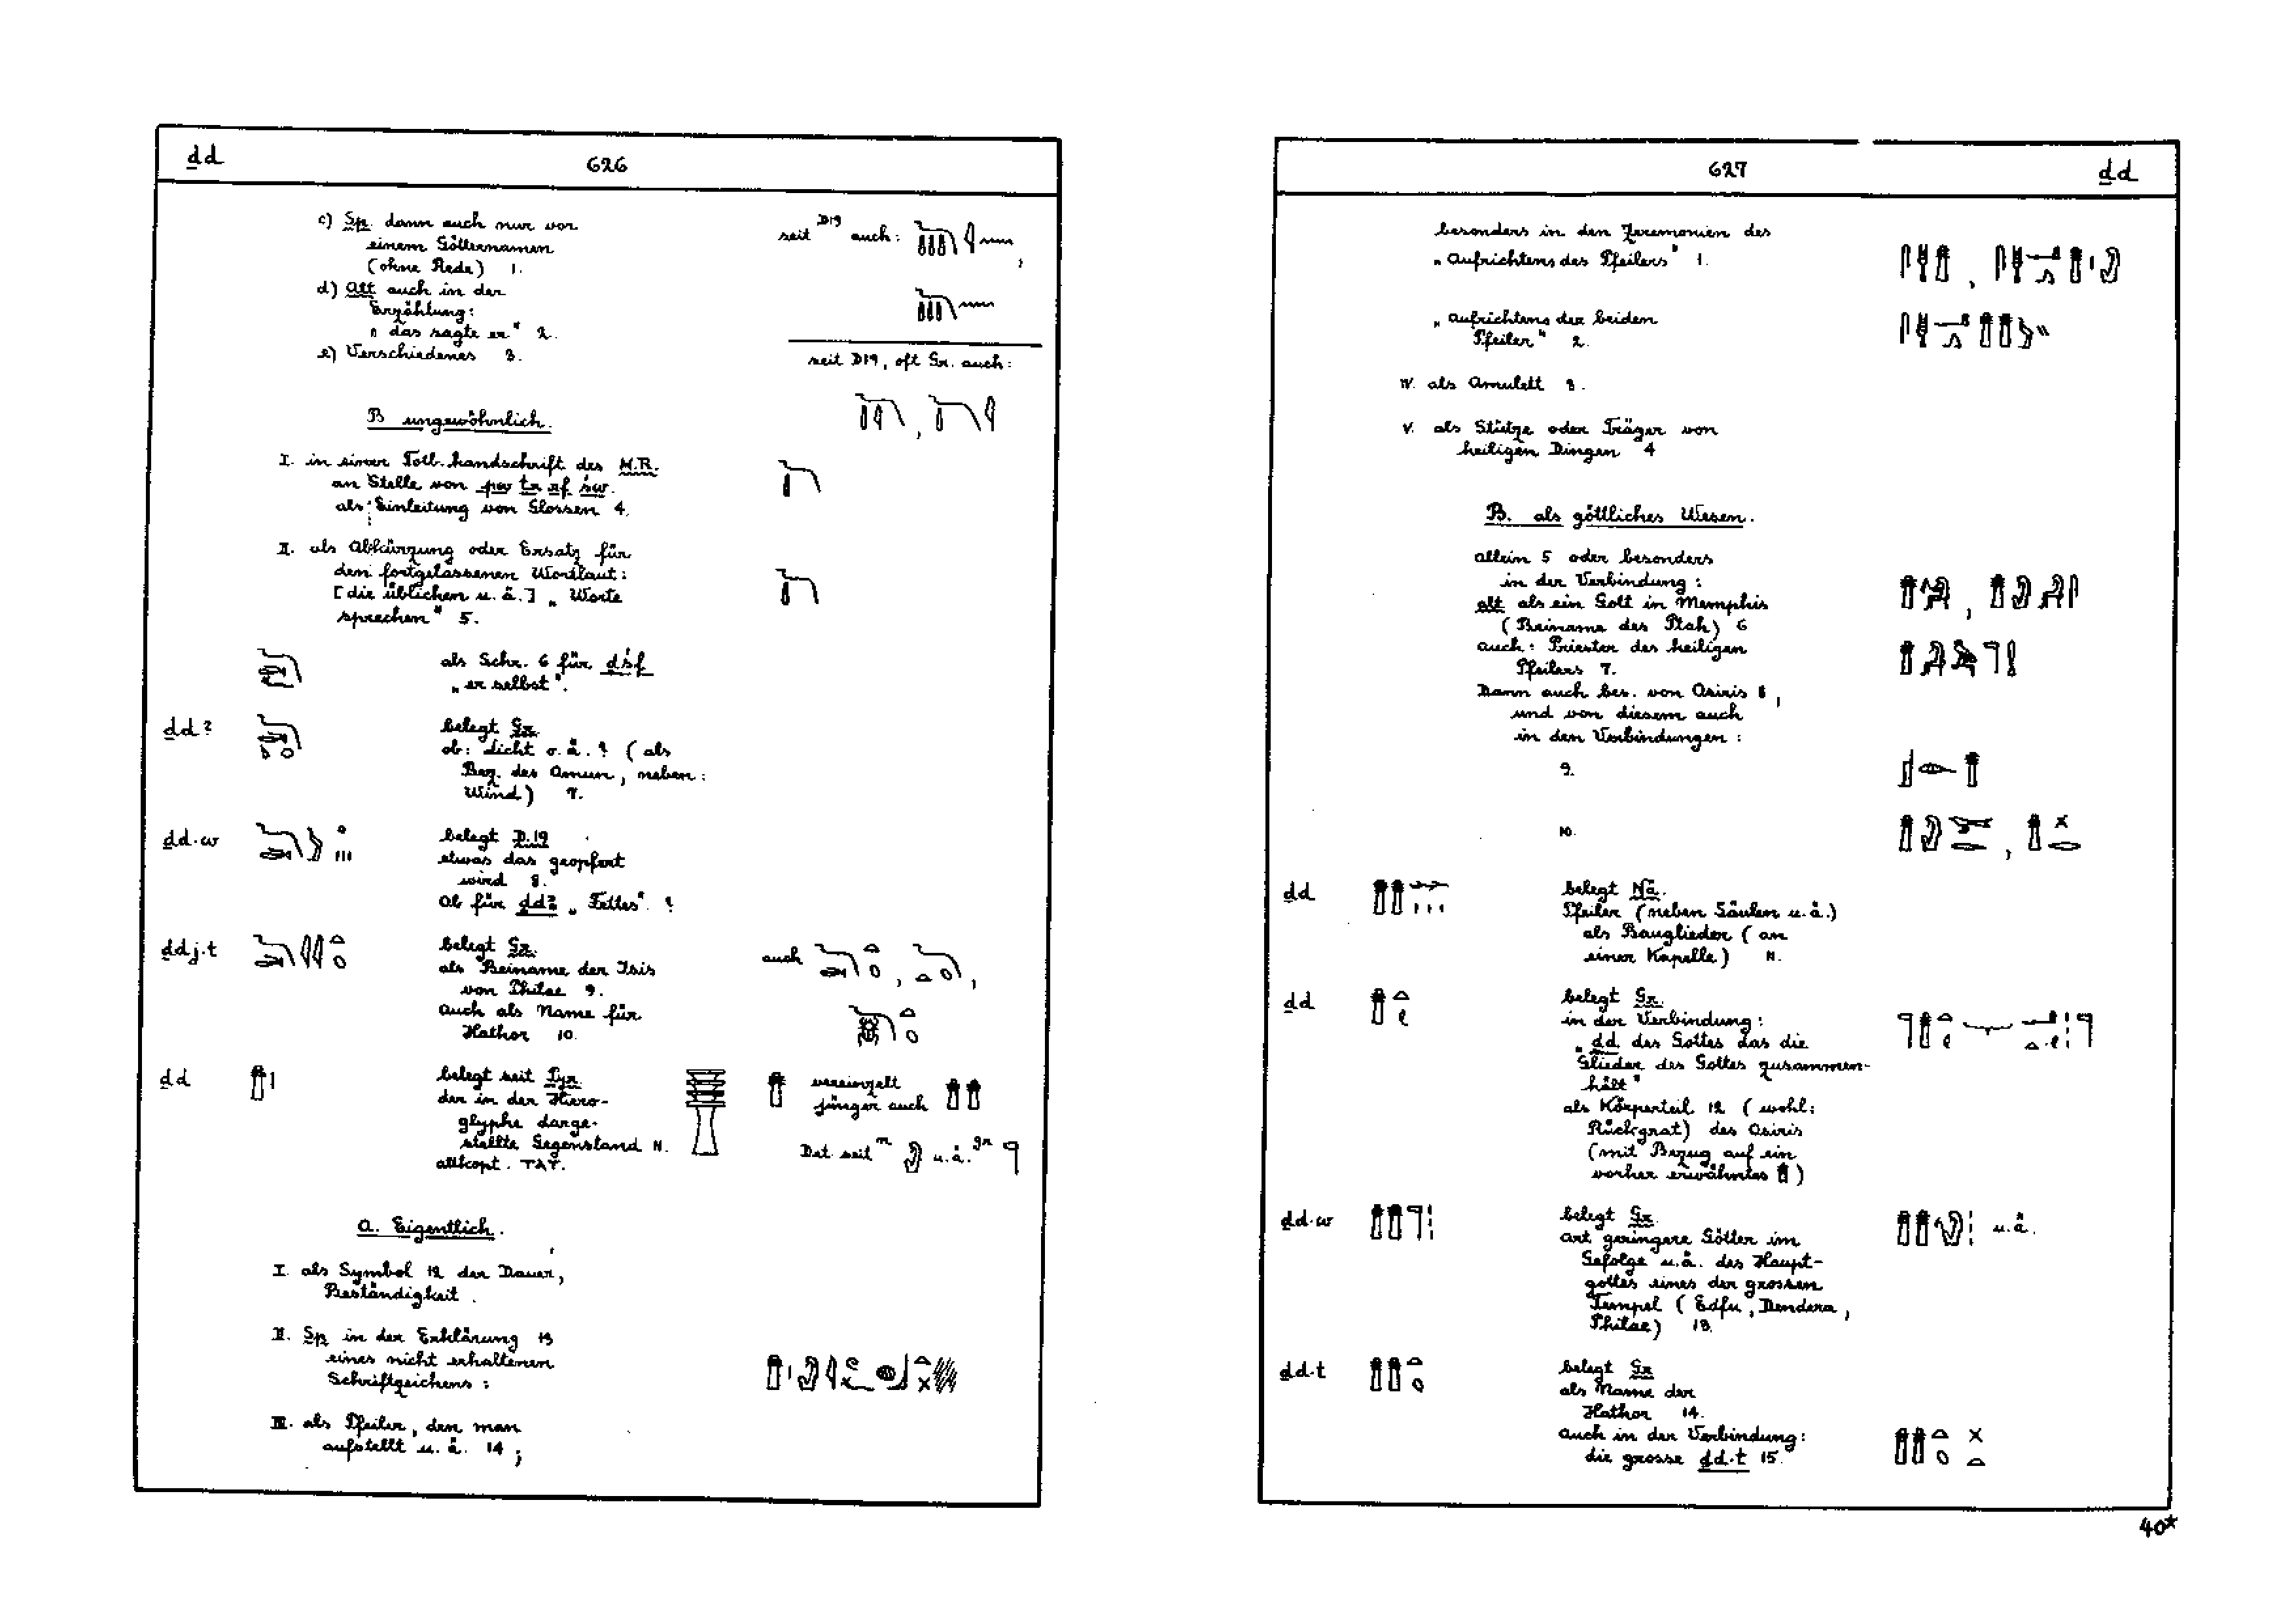 ḏd
626
c) Sp. dann auch nur vor
einem Götternamen
(ohne Rede) 1.
seit D19 auch:
d) Alt auch in der
Erzählung:
„das sagte er" 2.
e) Verschiedenes 3.
seit D19, oft Gr. auch:
B ungewöhnlich.
I. in einer Totb. handschrift des M.R.
an Stelle von pw tr rf św.
als Einleitung von Glossen 4.
II. als Abkürzung oder Ersatz für
den fortgelassenen Wortlaut:
[die üblichen u. ä.] „Worte
sprechen" 5.
als Schr. 6 für ḏś.f
„er selbst".
ḏd?
belegt Gr.
ob: Licht o. ä. ? (als
Bez. des Amun, neben:
Wind) 7.
ḏd.w
belegt D.19
etwas das geopfert
wird 8.
Ob für ḏdꜣ „Fettes". ?
ḏdj.t
belegt Gr.
als Beiname der Isis
von Philae 9.
auch als Name für
Hathor 10.
auch
ḏd
belegt seit Pyr.
der in der Hiero-
glyphe darge-
stellte Gegenstand 11.
altkopt. ΤΑΤ.
vereinzelt
jünger auch
Det. seit u. ä.
A. Eigentlich.
I. als Symbol 12 der Dauer,
Beständigkeit.
II. Sp in der Erklärung 13
eines nicht erhaltenen
Schriftzeichens:
III. als Pfeiler, den man
aufstellt u. ä. 14;
627
ḏd
besonders in den Zeremonien des
„Aufrichtens des Pfeilers" 1.
„Aufrichtens der beiden
Pfeiler" 2.
IV. als Amulett 3.
V. als Stütze oder Träger von
heiligen Dingen 4
B. als göttliches Wesen.
allein 5 oder besonders
in der Verbindung:
alt als ein Gott in Memphis
(Beiname des Ptah) 6
auch: Priester des heiligen
Pfeilers 7.
Dann auch bes. von Osiris 8,
und von diesem auch
in den Verbindungen:
9.
10.
ḏd
belegt Nä.
Pfeiler (neben Säulen u. ä.)
als Bauglieder (an
einer Kapelle) 11.
ḏd
belegt Gr.
in der Verbindung:
„ḏd des Gottes das die
Glieder des Gottes zusammen-
hält"
als Körperteil 12 (wohl:
Rückgrat) des Osiris
(mit Bezug auf ein
vorher erwähntes 𓊽)
ḏd.w
belegt Gr.
Art geringere Götter im
Gefolge u. ä. des Haupt-
gottes eines der grossen
Tempel (Edfu, Dendera,
Philae) 13.
u. ä.
ḏd.t
belegt Gr
als Name der
Hathor 14.
auch in der Verbindung:
die grosse ḏd.t 15.
40*